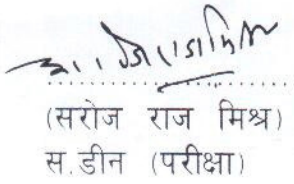 (सरोज राज मिश्र)
स.डीन (परीक्षा)